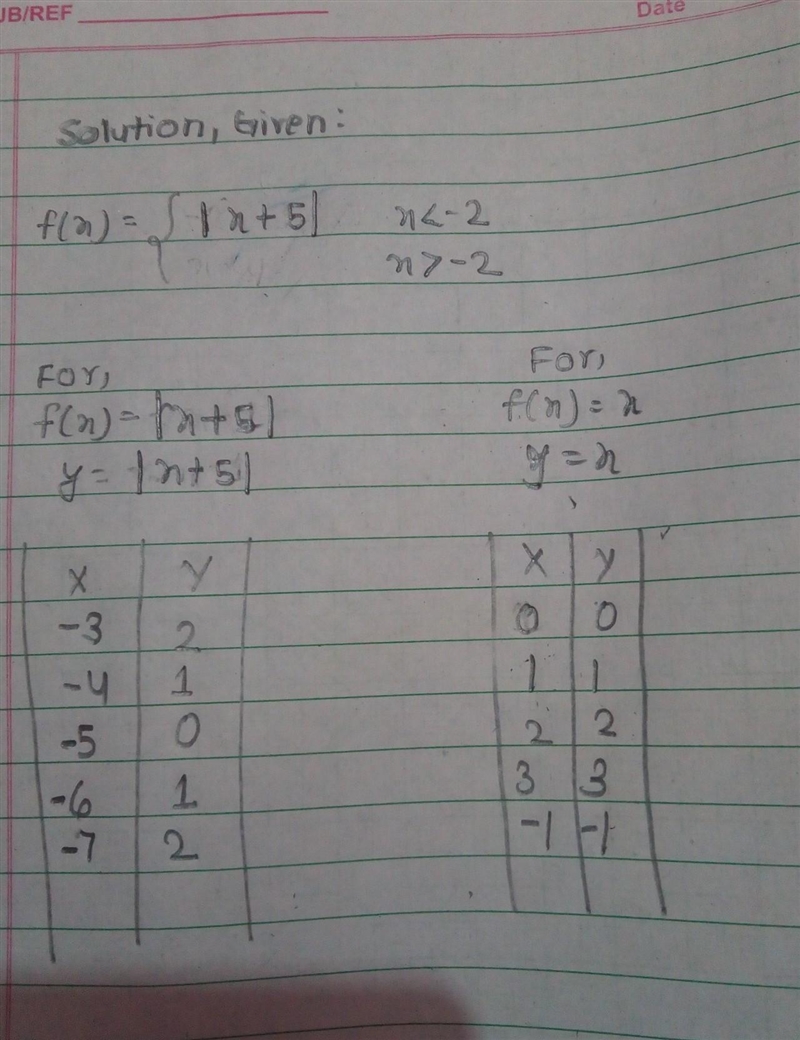 JB/REF
Date
Solution, Given:
f(x) = { |x+5| x<-2
x>-2
For,
For,
f(x) = |x+5|
f(x) = x
y = |x+5|
y = x
X Y
X Y
-3 2
0 0
-4 1
1 1
-5 0
2 2
-6 1
3 3
-7 2
-1 -1